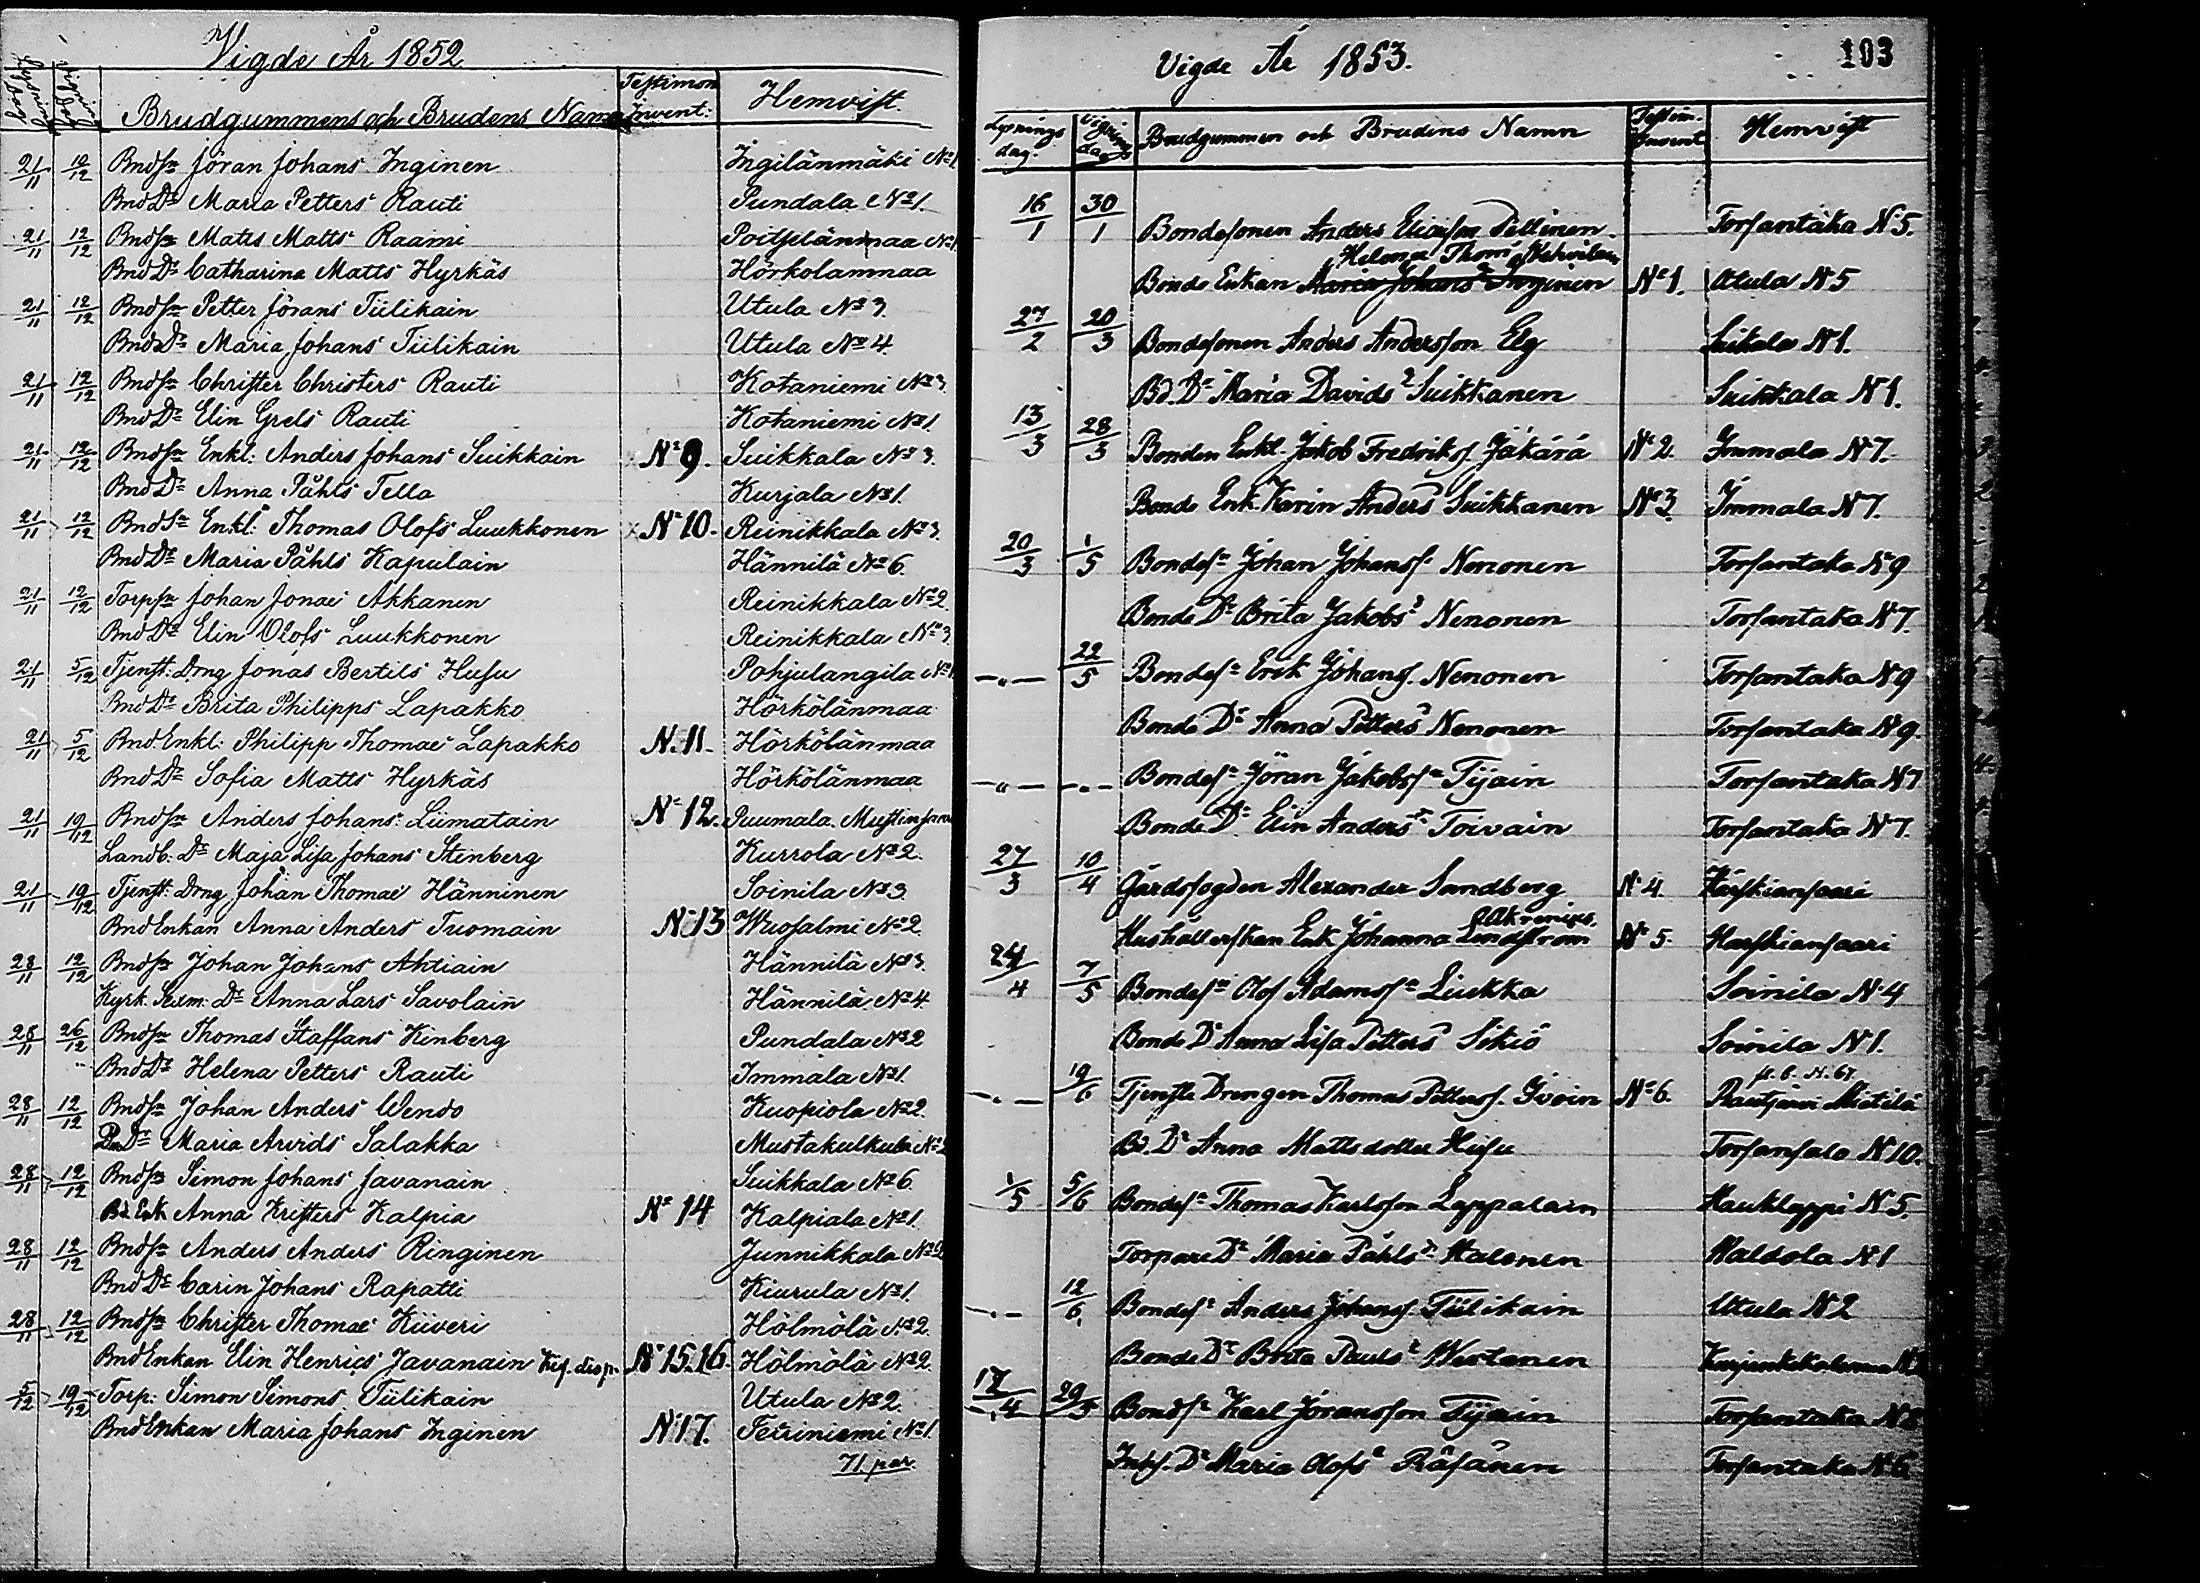 Vigde År 1852
Brudgummens och Brudens Namn Testimon Invent: Hemvist.
21/11 12/12 Bndsn Jöran Johans Inginen Ingilänmäki No 1
Bnd Dr Maria Petters Rauti Pundala No 1.
21/11 12/12 Bndsn Matts Matts Raami
Bnd Dr Catharina Matts Hyrkäs Hörkolanmaa
21/11 12/12 Bndsn Petter Jörans Tiilikain Utula No 3.
Bnd Dr Maria Johans Tiilikain Utula No 4.
21/11 12/12 Bndsn Christer Christers Rauti Kotaniemi No 3.
Bnd Dr Elin Grels Rauti Kotaniemi No 1.
21/11 12/12 Bndsn Enkl: Anders Johans Suikkain No 9. Suikkala No 3.
Bnd Dr Anna Påhls Tella Kurjala No 1.
21/11 12/12 Bndsn Enkl: Thomas Olofs Luukkonen No 10. Reinikkala No 3.
Bnd Dr Maria Påhls Kapulain Hännilä No 6.
21/11 12/12 Torpsn Johan Jonae Akkanen Reinikkala No 2.
Bnd Dr Elin Olofs Luukkonen Reinikkala No 3.
21/11 5/12 Tjenst: Drng Jonas Bertils Husu Pohjulangila No 1
Bnd Dr Brita Philipps Lapakko Hörkölänmaa
21/11 5/12 Bnd Enkl: Philipp Thomae Lapakko N. 11. Hörkölänmaa
Bnd Dr Sofia Matts Hyrkäs Hörkölänmaa
21/11 19/12 Bndsn Anders Johans: Liimatain No 12. Puumala.
Landb: Dr Maja Lisa Johans Stenberg Kurrola No 2.
21/11 19/12 Tjenst: Drng Johan Thomae Hänninen Soinila No 3.
Bnd Enkan Anna Anders Tuomain No 13 Wuosalmi No 2.
28/11 12/12 Bndsn Johan Johans Ahtiain Hännilä No 3.
Kyrk. Sexm: Dr Anna Lars Savolain Hännilä No 4.
28/11 26/12 Bndsn Thomas Staffans Kinberg Pundala No 2
Bnd Dr Helena Petters Rauti Immala No 1.
28/11 12/12 Bndsn Johan Anders Wendo Kuopiola No 2.
Bnd Dr Maria Arvids Salakka Mustakulkula No 2
28/11 12/12 Bndsn Simon Johans Javanain Suikkala No 6.
Bd Enk Anna Kristers Kalpia No 14 Kalpiala No 1.
28/11 12/12 Bndsn Anders Anders Ringinen Junnikkala No 2
Bnd Dr Carin Johans Rapatti Kiurula No 1.
28/11 12/12 Bndsn Christer Thomae Kiiveri Hölmölä No 2.
Bnd Enkan Elin Henrics Javanain Kejs. disp. No 15.16. Hölmölä No 2.
5/12 19/12 Torp: Simon Simons Tiilikain Utula No 2.
Bnd Enkan Maria Johans Inginen No 17. Tetriniemi No 1.
71 par.
Vigde År 1853.
103
Lysnings dag. Vignings dag Brudgummen och Brudens Namn Testim. Invent Hemvist
16/1 30/1 Bondesonen Anders Eliasson Pellinen Torsantaka N 5.
Helena Thom
Bonde Enkan Maria Johans Inginen No 1. Utula N 5
27/2 20/3 Bondesonen Anders Andersson Elg Suikala N 1.
Bd. Dr Maria Davids Suikkanen Suikkala N 1.
13/3 28/3 Bonden Enkl. Jakob Fredriks. Jäkärä No 2. Immala N 7.
Bonde Enk. Karin Anders Suikkanen No 3. Immala N 7.
20/3 1/5 Bondesn Johan Johans. Nenonen Torsantaka N 9
Bonde Dr Brita Jakobs Nenonen Torsantaka N 7.
—„— 22/5 Bondesn Erik Johans. Nenonen Torsantaka N 9
Bonde Dr Anna Petters Nenonen Torsantaka N 9.
—„— —„— Bondesn Jöran Jakobssn Tijain Torsantaka N 7
Bonde Dr Elin Anders Toivain Torsantaka N 7.
27/3 10/4 Gårdsfogden Alexander Sandberg No 4. Härskiansaari
Hushållerskan Enk Johanna Lindström No 5. Harskiansaari
24/4 7/5 Bondesn Olof Adamssn Liukka Soinila N 4
Bonde Dr Anna Lisa Petters Sikiö Soinila N 1.
—„— 19/6 Tjenste Drengen Thomas Petters. Ivoin No 6. Rautjärvi Miettilä
Bd. Dr Anna Mattsdotter Husu Torsansalo N 10.
1/5 5/6 Bondesn Thomas Karlsson Lappalain Haukkappi N 5.
Torpare Dr Maria Påhls Halonen Haldola N 1
—„— 12/6. Bondesn Anders Johans. Tiilikain Utula N 2
Bonde Dr Brita Pauls Wertanen
17/4 29/5 Bondsn Karl Jöransson Tijain Torsantaka N 8
Inhs. Dr Maria Olofs Räsänen Torsantaka N 6